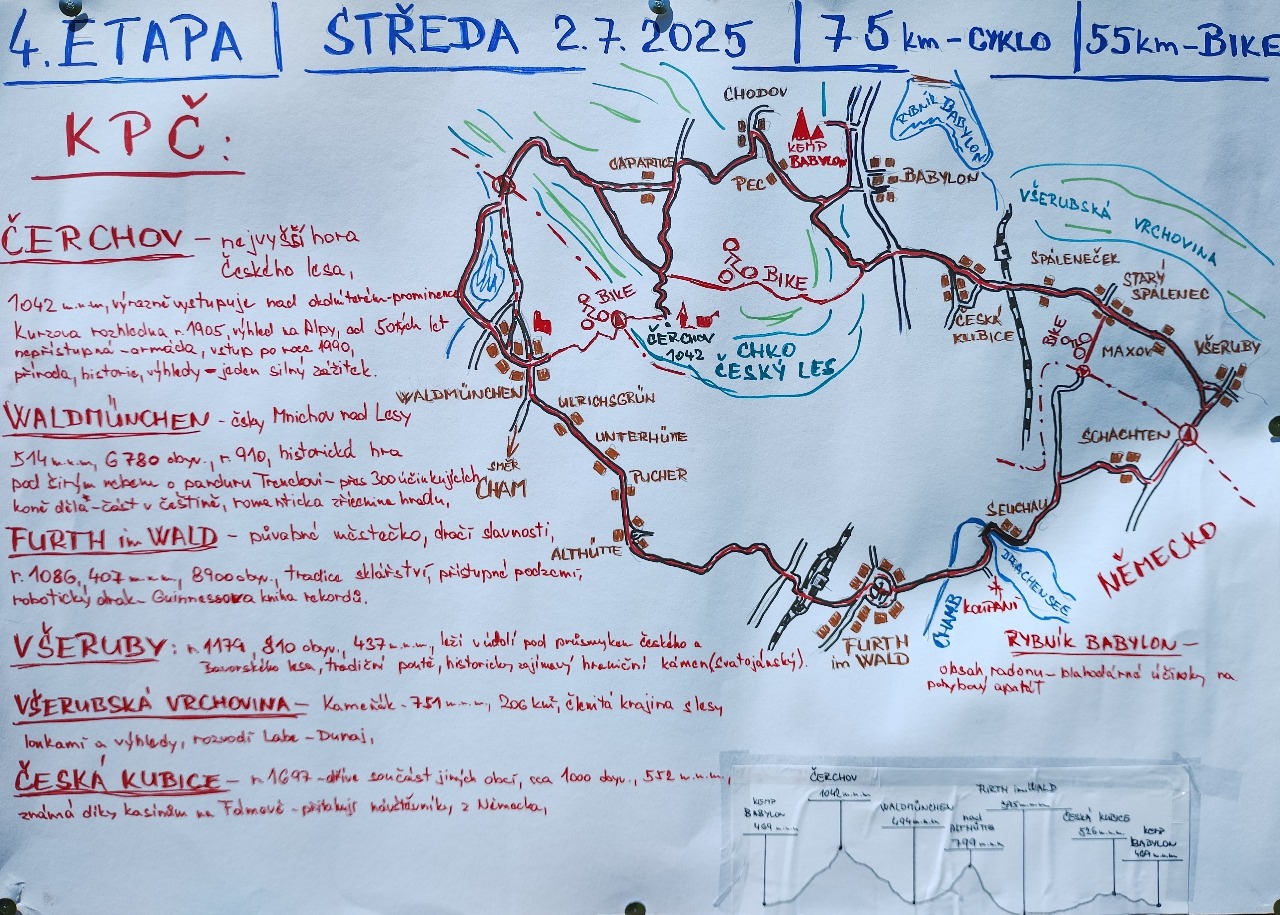 4. ETAPA | STŘEDA 2.7.2025 | 75 km - CYKLO | 55 km - BIKE
KPČ:
ČERCHOV - nejvyšší hora
Českého lesa,
1042 m.n.m, výrazně vystupuje nad okolí terén-prominence
Kurzova rozhledna r. 1905, výhled na Alpy, od 50tých let
nepřístupná - armáda, vstup po roce 1990,
příroda, historie, výhledy - jeden silný zážitek.
WALDMÜNCHEN - česky Mnichov nad Lesy
514 m.n.m, 6780 obyv., r. 910, historická hra
pod širým nebem o panduru Trenckovi - přes 300 účinkujících
koně dělá - část v češtině, romantická zřícenina hradu,
FURTH im WALD - půvabné městečko, dračí slavnosti,
r. 1086, 407 m.n.m, 8900 obyv., tradice sklářství, přístupné podzemí,
robotický drak - Guinnessova kniha rekordů.
VŠERUBY: r. 1179, 810 obyv., 437 m.n.m, leží v údolí pod průsmykem českého a
Bavorského lesa, tradiční poutě, historicky zajímavý hraniční kámen (svatojánský).
VŠERUBSKÁ VRCHOVINA - Kameňák - 751 m.n.m, 206 km², členitá krajina s lesy
loukami a výhledy, rozvodí Labe - Dunaj,
ČESKÁ KUBICE - r. 1697 - dříve součást jiných obcí, cca 1000 obyv., 552 m.n.m,
známá díky kasinům na Folmavě - přitahují návštěvníky z Německa,
CHODOV
KEMP
BABYLON
RYBNÍK BABYLON
CAPARTICE
PEC
BABYLON
VŠERUBSKÁ VRCHOVINA
SPÁLENEČEK
STARÝ
SPÁLENEC
BIKE
BIKE
ČESKÁ
KUBICE
BIKE
MAXOV
VŠERUBY
ČERCHOV
1042
CHKO
ČESKÝ LES
WALDMÜNCHEN
ULRICHSGRÜN
UNTERHÜTTE
SCHACHTEN
SMĚR
CHAM
PUCHER
SEUCHAU
ALTHÜTTE
DRACHENSEE
NĚMECKO
KOUPÁNÍ
CHAMB
FURTH
im WALD
RYBNÍK BABYLON -
obsah radonu - blahodárné účinky na
pohybový aparát
KEMP
BABYLON
469 m.n.m
ČERCHOV
1042 m.n.m
WALDMÜNCHEN
494 m.n.m
nad
ALTHÜTTE
799 m.n.m
FURTH im WALD
395 m.n.m
ČESKÁ KUBICE
526 m.n.m
KEMP
BABYLON
469 m.n.m